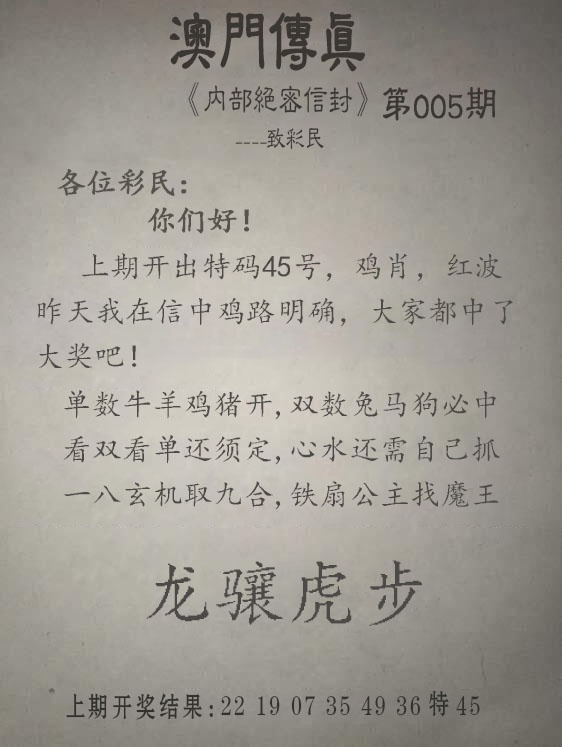 澳門傳眞
《内部絕密信封》第005期
----致彩民
各位彩民：
你们好！
上期开出特码45号，鸡肖，红波
昨天我在信中鸡路明确，大家都中了
大奖吧！
单数牛羊鸡猪开,双数兔马狗必中
看双看单还须定,心水还需自己抓
一八玄机取九合,铁扇公主找魔王
龙骧虎步
上期开奖结果:22 19 07 35 49 36特45